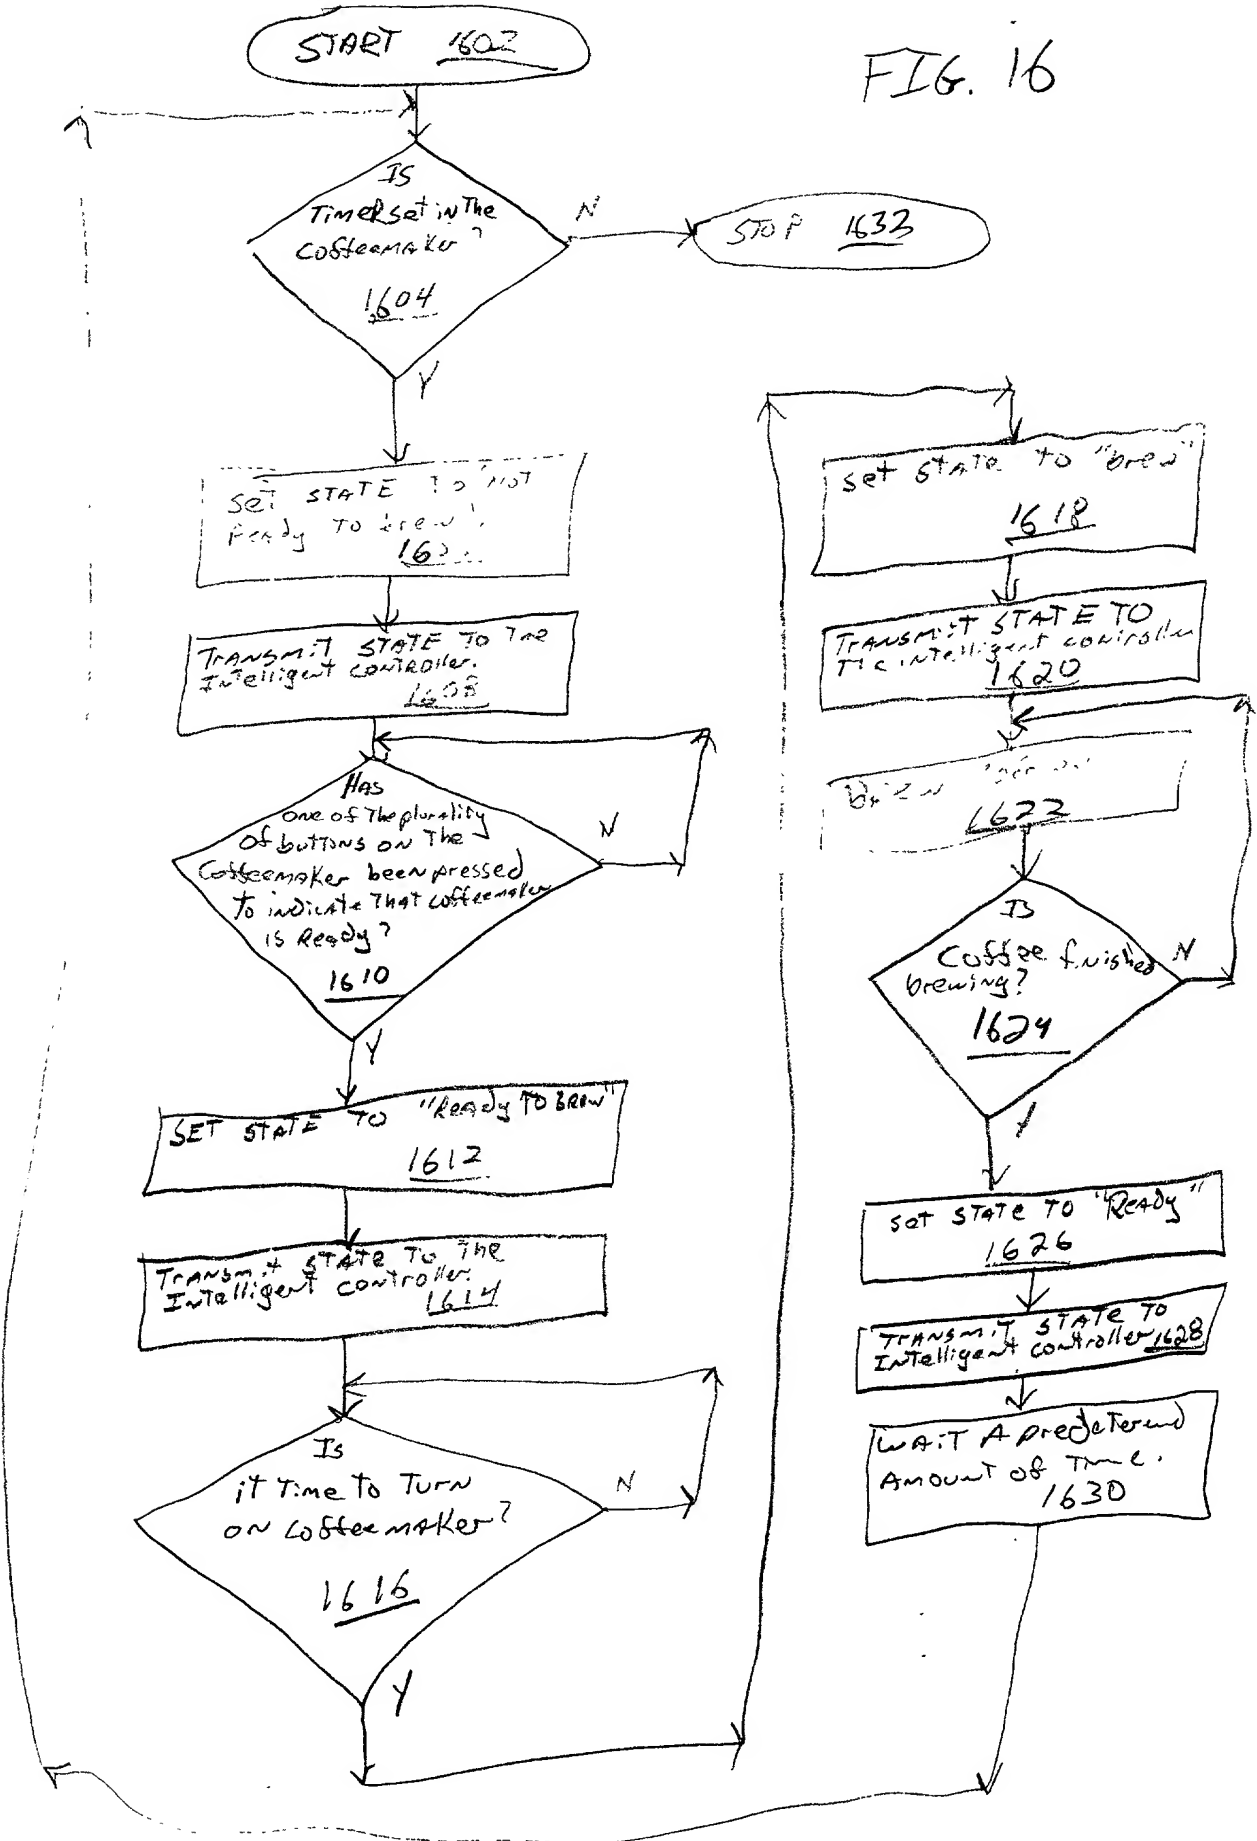 START 1602
FIG. 16
Is
Timer set in The
Coffeemaker?
1604
N
STOP 1633
Y
Set STATE To "Not
Ready To brew".
Transmit STATE TO The
Intelligent controller.
1608
Has
one of The plurality
of buttons on The
Coffeemaker been pressed
To indicate That coffeemaker
is Ready?
1610
N
Y
SET STATE TO "Ready TO BREW"
1612
Transmit STATE To The
Intelligent controller.
1614
Is
it Time to Turn
on coffeemaker?
1616
N
Y
set STATE to "brew"
1618
Transmit STATE TO
The intelligent controller
1620
1622
Is
Coffee finished
brewing?
1624
N
Y
set STATE TO "Ready"
1626
Transmit STATE TO
Intelligent controller 1628
WAIT A predetermined
Amount of Time.
1630